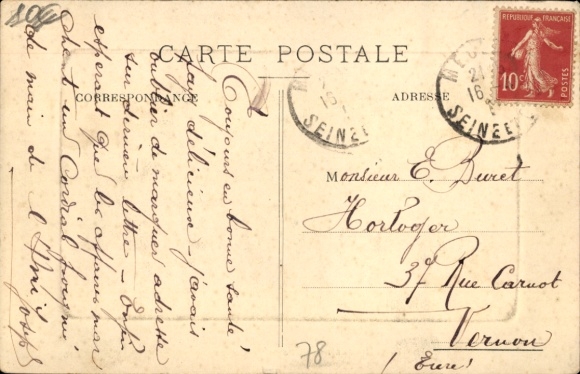 CARTE POSTALE
CORRESPONDANCE
ADRESSE
RÉPUBLIQUE FRANÇAISE
10c
SEINE
SEINE
21
16
Toujours en bonne santé
pays délicieux - j'avais
oublié de marquer adresse
sur dernière lettre - Enfin
esperant que les affaires mar
chent un Cordial
de main de l'Ami
Monsieur E. Buret
Horloger
37 Rue Carnot
Vernon
(Eure)
78